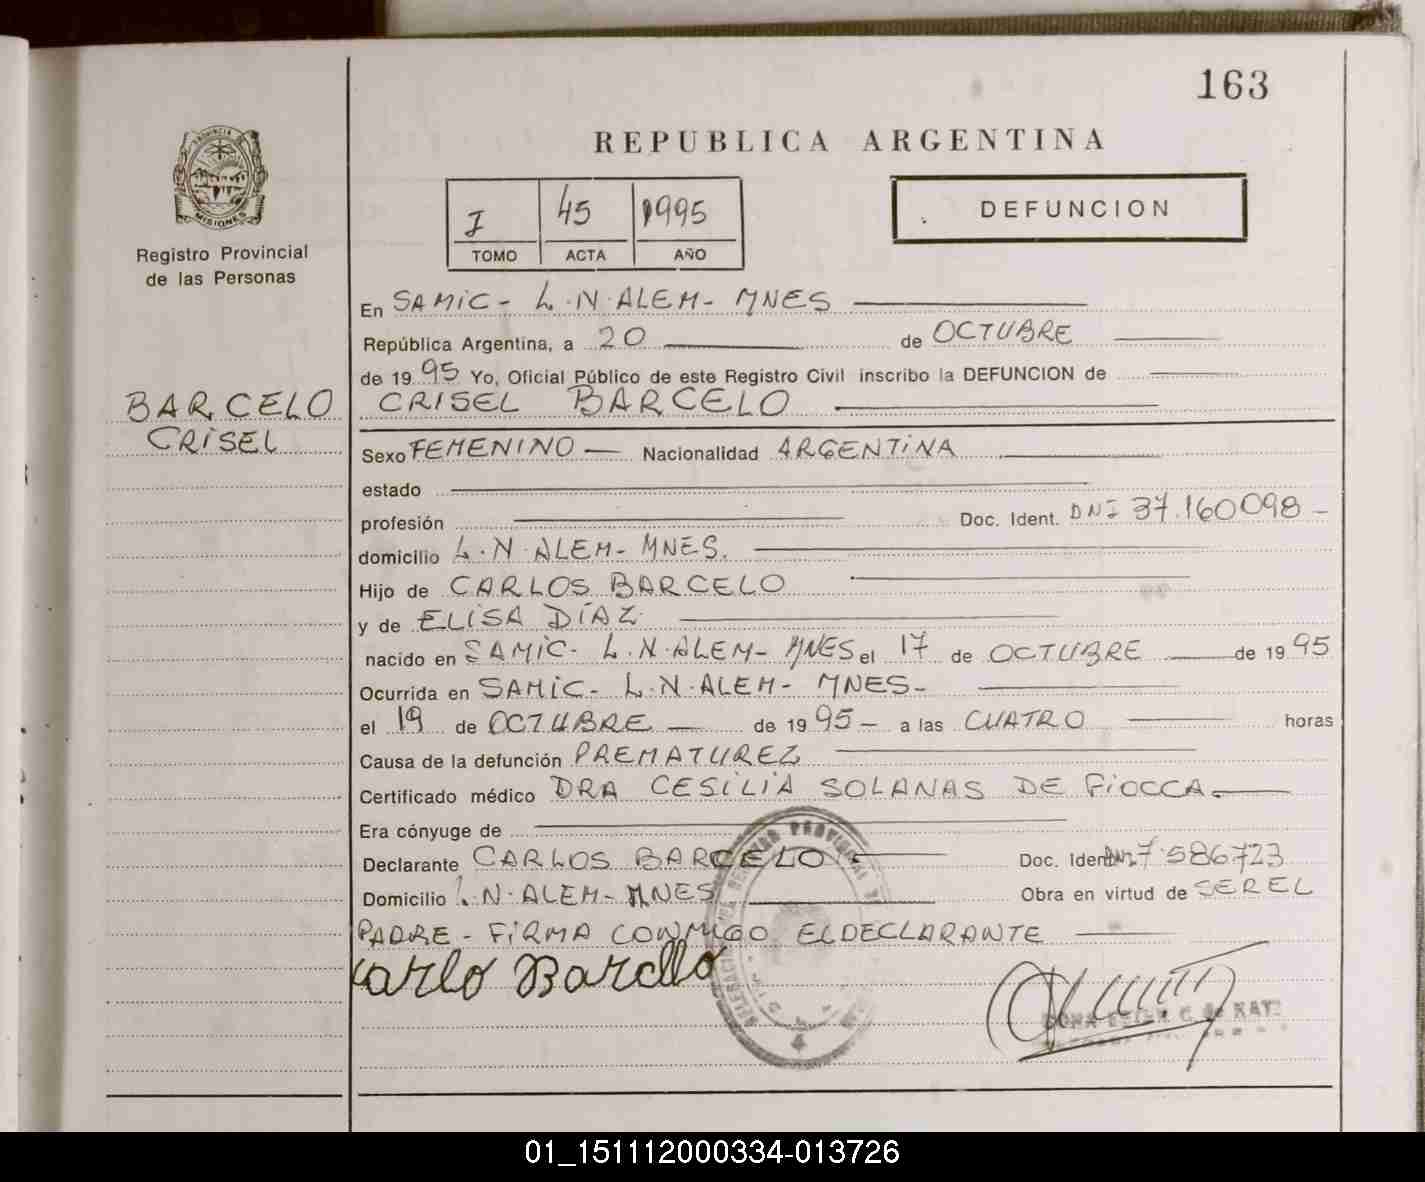 163
REPUBLICA ARGENTINA
PROVINCIA DE
MISIONES
Registro Provincial
de las Personas
I 45 1995
TOMO ACTA AÑO
DEFUNCION
En SAMIC - L.N.ALEM - MNES
República Argentina, a 20 de OCTUBRE
de 1995 Yo, Oficial Público de este Registro Civil inscribo la DEFUNCION de
BARCELO
CRISEL
CRISEL BARCELO
Sexo FEMENINO Nacionalidad ARGENTINA
estado
profesión Doc. Ident. DNI 37.160098
domicilio L.N.ALEM - MNES.
Hijo de CARLOS BARCELO
y de ELISA DÍAZ
nacido en SAMIC - L.N.ALEM - MNES el 17 de OCTUBRE de 1995
Ocurrida en SAMIC - L.N.ALEM - MNES -
el 19 de OCTUBRE de 1995 - a las CUATRO horas
Causa de la defunción PREMATUREZ
Certificado médico DRA CESILIA SOLANAS DE FIOCCA.
Era cónyuge de
Declarante CARLOS BARCELO Doc. Ident. DNI 7.586723
Domicilio L.N.ALEM - MNES Obra en virtud de SER EL
PADRE - FIRMA CONMIGO EL DECLARANTE
Carlo Barcelo
4
01_151112000334-013726